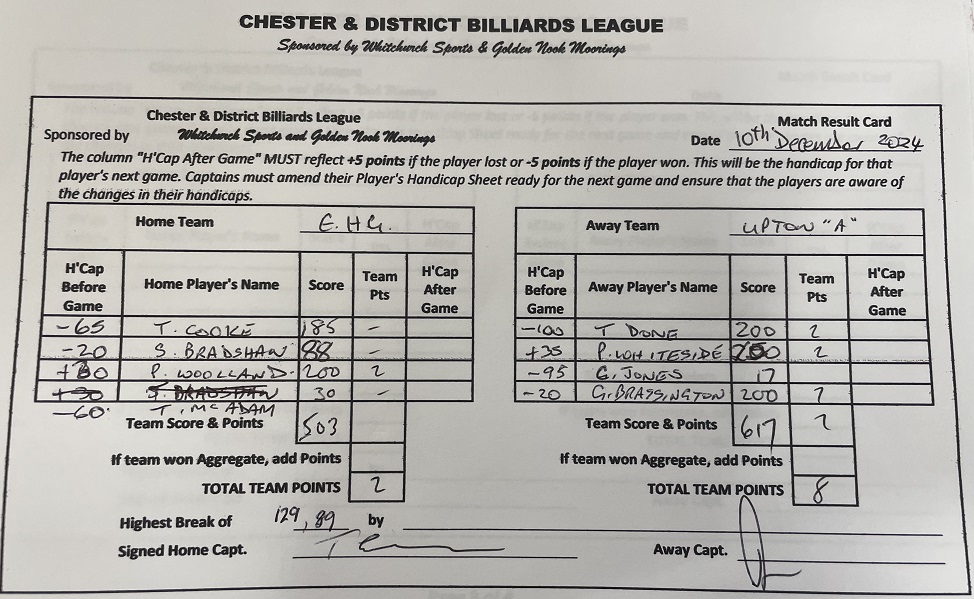 CHESTER & DISTRICT BILLIARDS LEAGUE
Sponsored by Whitchurch Sports & Golden Nook Moorings
Chester & District Billiards League
Match Result Card
Sponsored by Whitchurch Sports and Golden Nook Moorings
Date 10th December 2024
The column "H'Cap After Game" MUST reflect +5 points if the player lost or -5 points if the player won. This will be the handicap for that
player's next game. Captains must amend their Player's Handicap Sheet ready for the next game and ensure that the players are aware of
the changes in their handicaps.
Home Team E.H.G.
H'Cap Before Game Home Player's Name Score Team Pts H'Cap After Game
-65 T. COOKE 185 -
-20 S. BRADSHAW 88 -
+30 P. WOOLLAND. 200 2
+30 S. BRADSHAW 30 -
-60. T. McADAM
Team Score & Points 503
If team won Aggregate, add Points
TOTAL TEAM POINTS 2
Away Team UPTON "A"
H'Cap Before Game Away Player's Name Score Team Pts H'Cap After Game
-100 T DONE 200 2
+35 P. WHITESIDE 200 2
-95 G. JONES 17
-20 G. BRASSINGTON 200 2
Team Score & Points 617 2
If team won Aggregate, add Points
TOTAL TEAM POINTS 8
Highest Break of 129, 89 by
Signed Home Capt.
Away Capt.